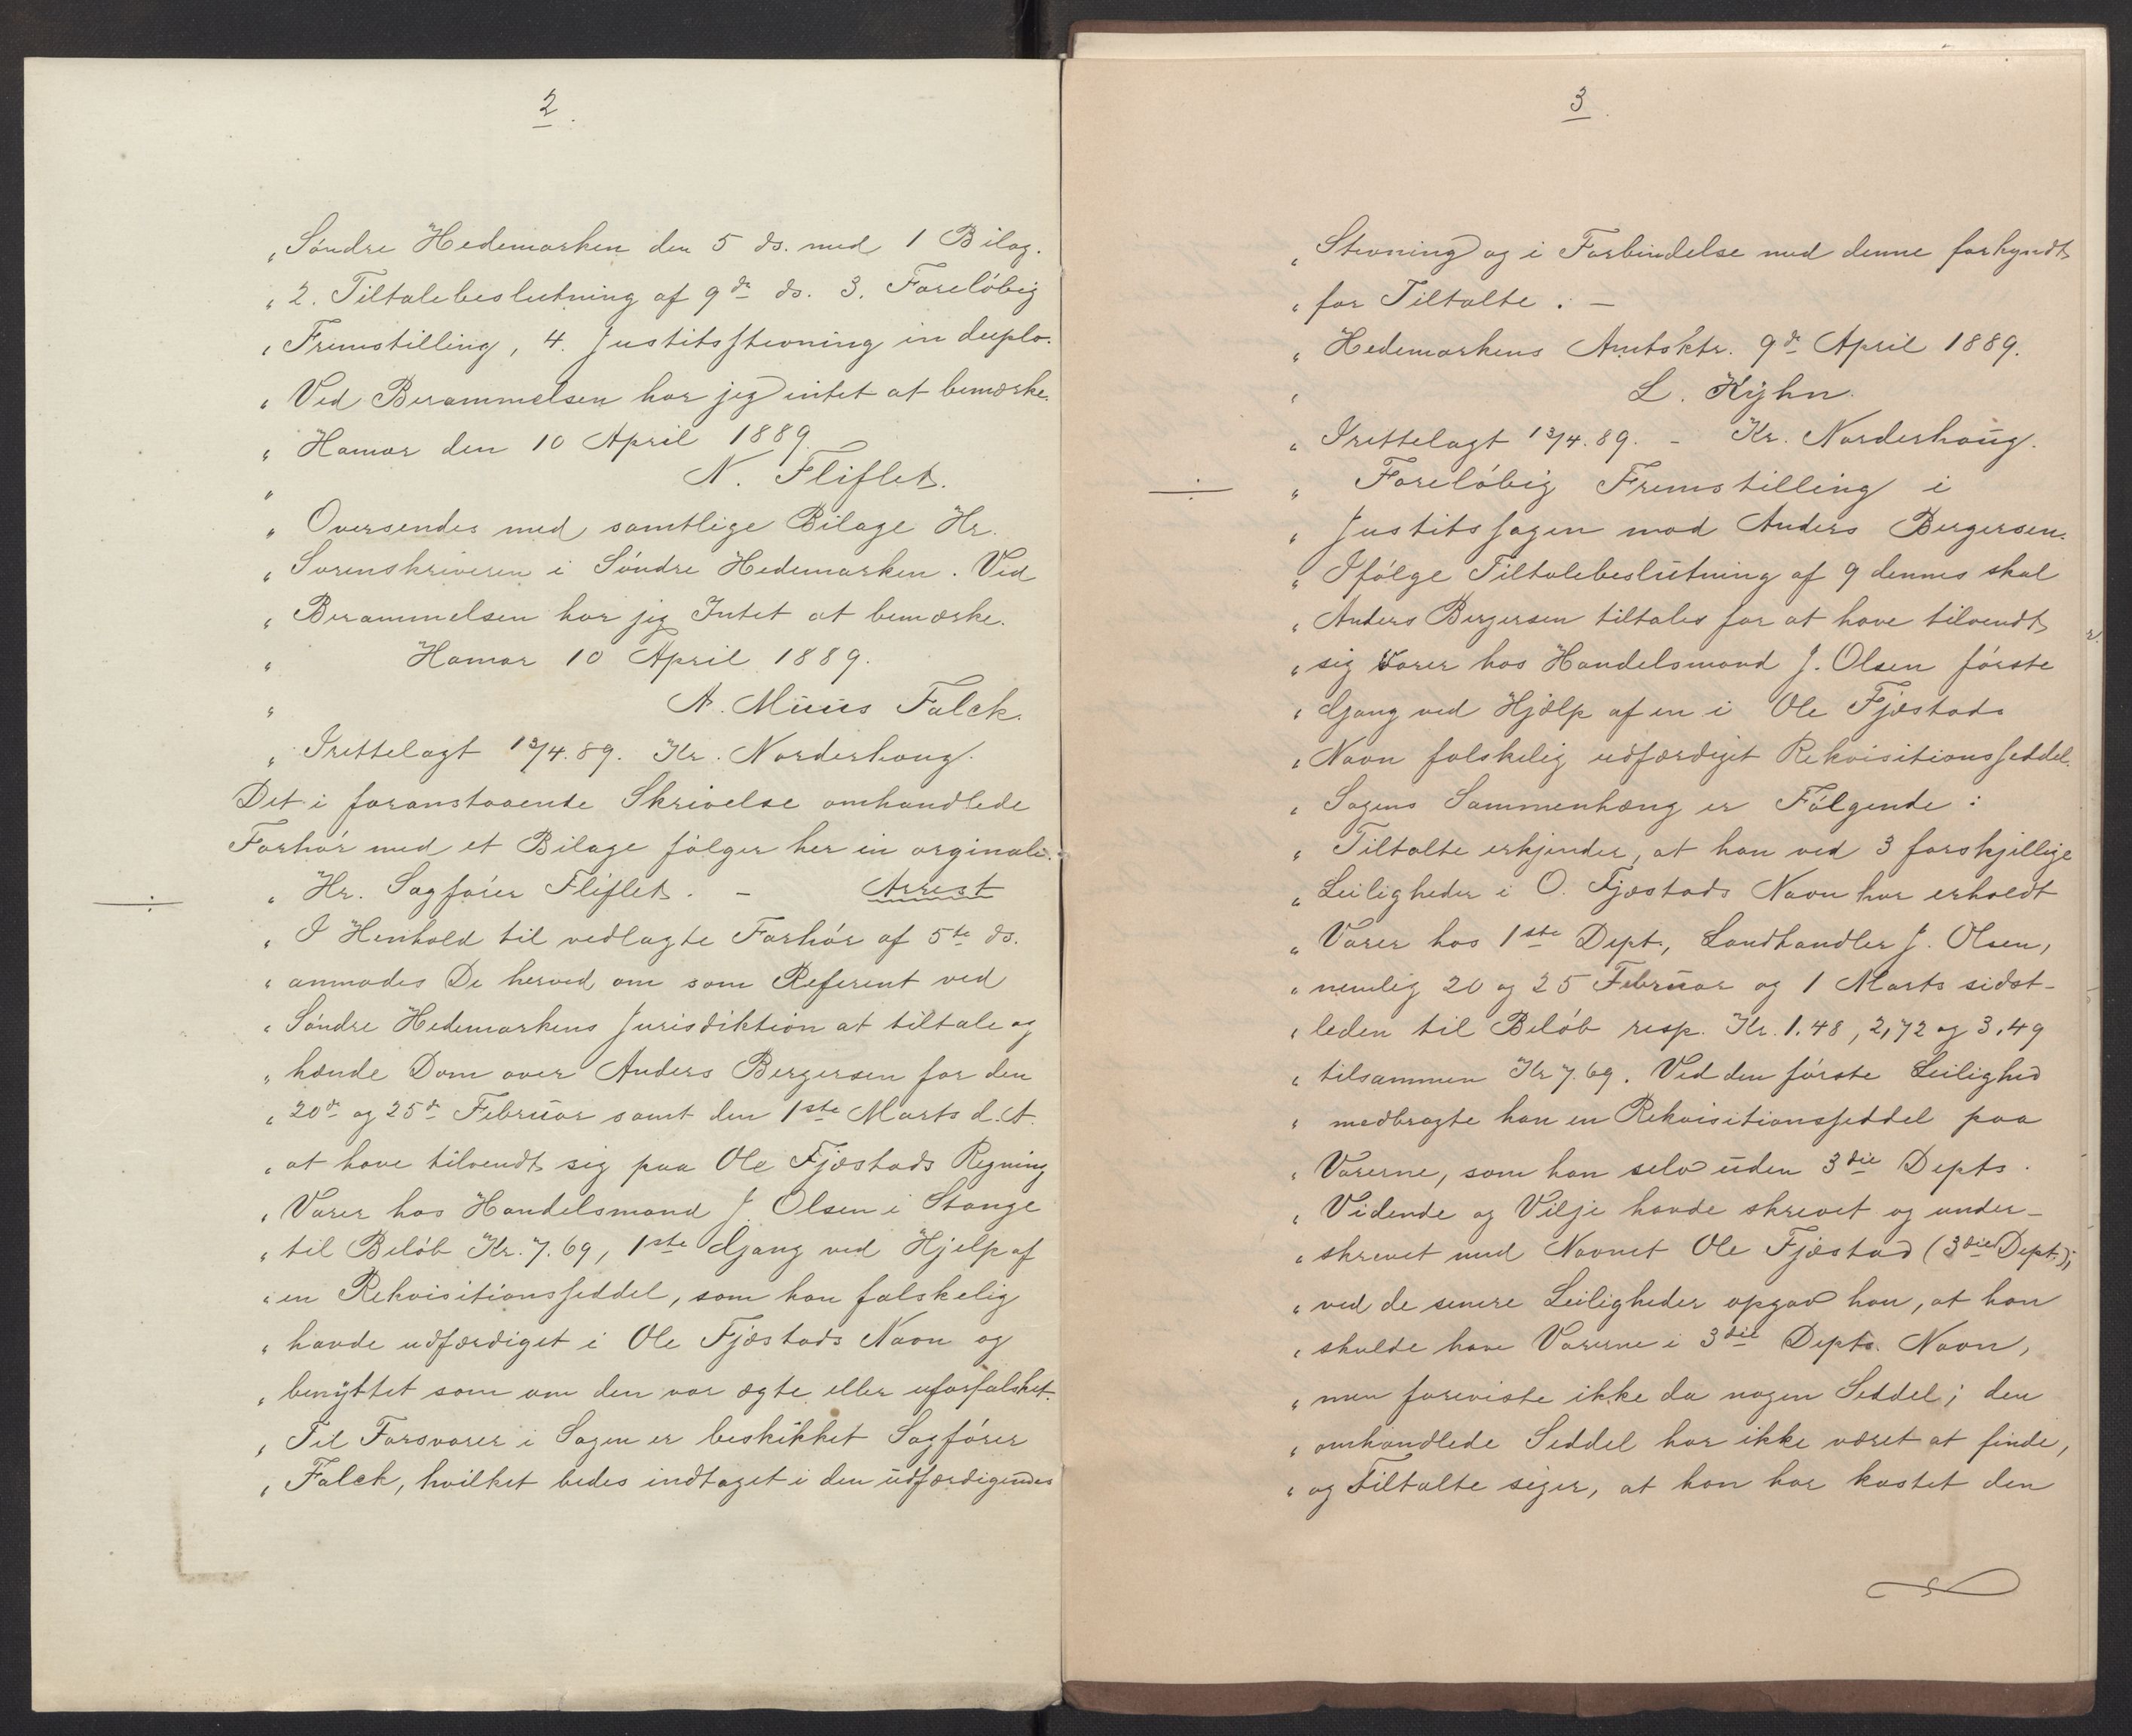 2.
„ Söndre Hedemarken den 5 ds. med 1 Bilag.
„ 2. Tiltalebeslutning af 9de ds. 3. Foreløbig
„ Fremstilling, 4. Justitsstevning in duplo.
„ Ved Berammelsen har jeg intet at bemærke.
„ Hamar den 10 April 1889.
„ N. Fliflet.
„ Oversendes med samtlige Bilage Hr.
„ Sorenskriveren i Søndre Hedemarken. Ved
„ Berammelsen har jeg Intet at bemærke.
„ Hamar 10 April 1889.
„ A. Müüs Falck.
„ Irettelagt 13/4.89. Kr. Norderhoug.
Det i foranstaaende Skrivelse omhandlede
Forhør med et Bilage følger her in orginali.
÷ „ Hr. Sagfører Fliflet. – Arrest
„ I Henhold til vedlagte Forhør af 5te ds.
„ anmodes De herved om som Referent ved
„ Søndre Hedemarkens Jurisdiktion at tiltale og
„ hænde Dom over Anders Bergersen for den
„ 20de og 25de Februar samt den 1ste Marts d. A.
„ at have tilvendt sig paa Ole Fjæstads Regning
„ Varer hos Handelsmand J. Olsen i Stange
„ til Beløb Kr. 7.69, 1ste Gang ved Hjelp af
„ en Rekvisitionsseddel, som han falskelig
„ havde udfærdiget i Ole Fjæstads Navn og
„ benyttet som om den var ægte eller uforfalsket.
„ Til Forsvarer i Sagen er beskikket Sagfører
„ Falck, hvilket bedes indtaget i den udfærdigendes
3.
„ Stevning og i Forbindelse med denne forkyndt
„ for Tiltalte. –
„ Hedemarkens Amtsktr. 9de April 1889.
„ L. Kyhn.
„ Irettelagt 13/4.89. – Kr. Norderhoug.
÷ „ Foreløbig Fremstilling i
„ Justitssagen mod Anders Bergersen.
„ Ifølge Tiltalebeslutning af 9 dennes skal
„ Anders Bergersen tiltales for at have tilvendt
„ sig Varer hos Handelsmand J. Olsen første
„ Gang ved Hjælp af en i Ole Fjæstads
„ Navn falskelig udfærdiget Rekvisitionsseddel.
„ Sagens Sammenhæng er Følgende:
„ Tiltalte erkjender, at han ved 3 forskjellige
„ Leiligheder i O. Fjæstads Navn har erholdt
„ Varer hos 1ste Dept., Landhandler J. Olsen,
„ nemlig 20 og 25 Februar og 1 Marts sidst-
„ leden til Beløb resp. Kr. 1.48, 2,72 og 3.49
„ tilsammen Kr 7.69. Ved den første Leilighed
„ medbragte han en Rekvisitionsseddel paa
„ Varerne, som han selv uden 3die Depts.
„ Vidende og Vilje havde skrevet og under-
„ skrevet med Navnet Ole Fjæstad (3die Dept.);
„ ved de senere Leiligheder opgav han, at han
„ skulde have Varerne i 3die Depts. Navn,
„ men foreviste ikke da nogen Seddel; den
„ omhandlede Seddel har ikke været at finde,
„ og Tiltalte siger, at han har kastet den